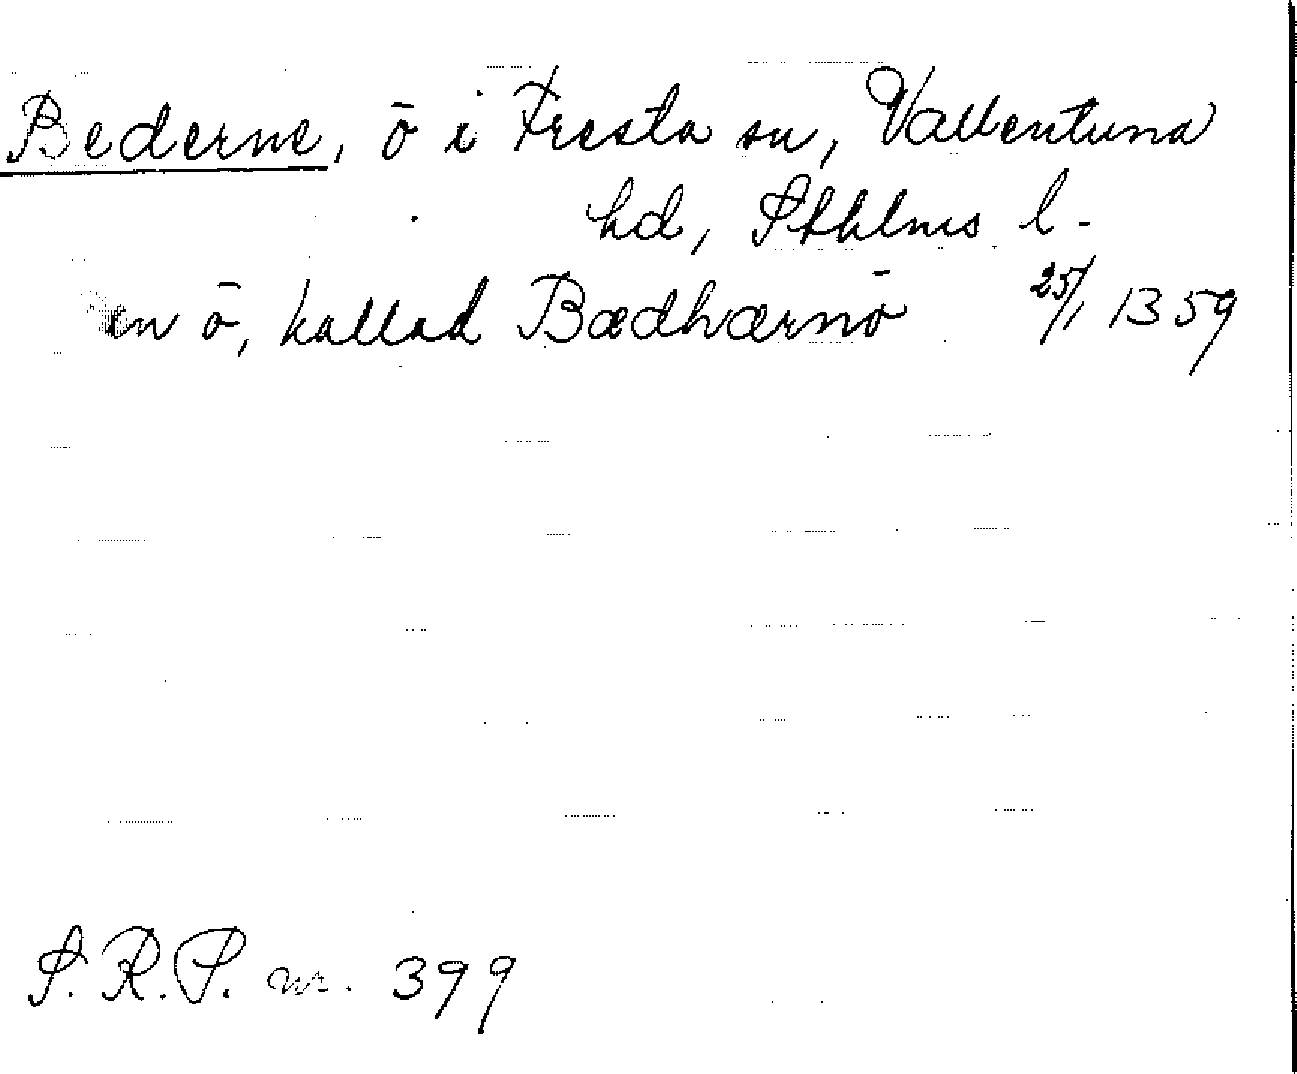 Bederne, ö i Fresta sn, Vallentuna
hd, Sthlms l.
en ö, kallad Bædhærnö 25/1 1359
S.R.P. nr. 399